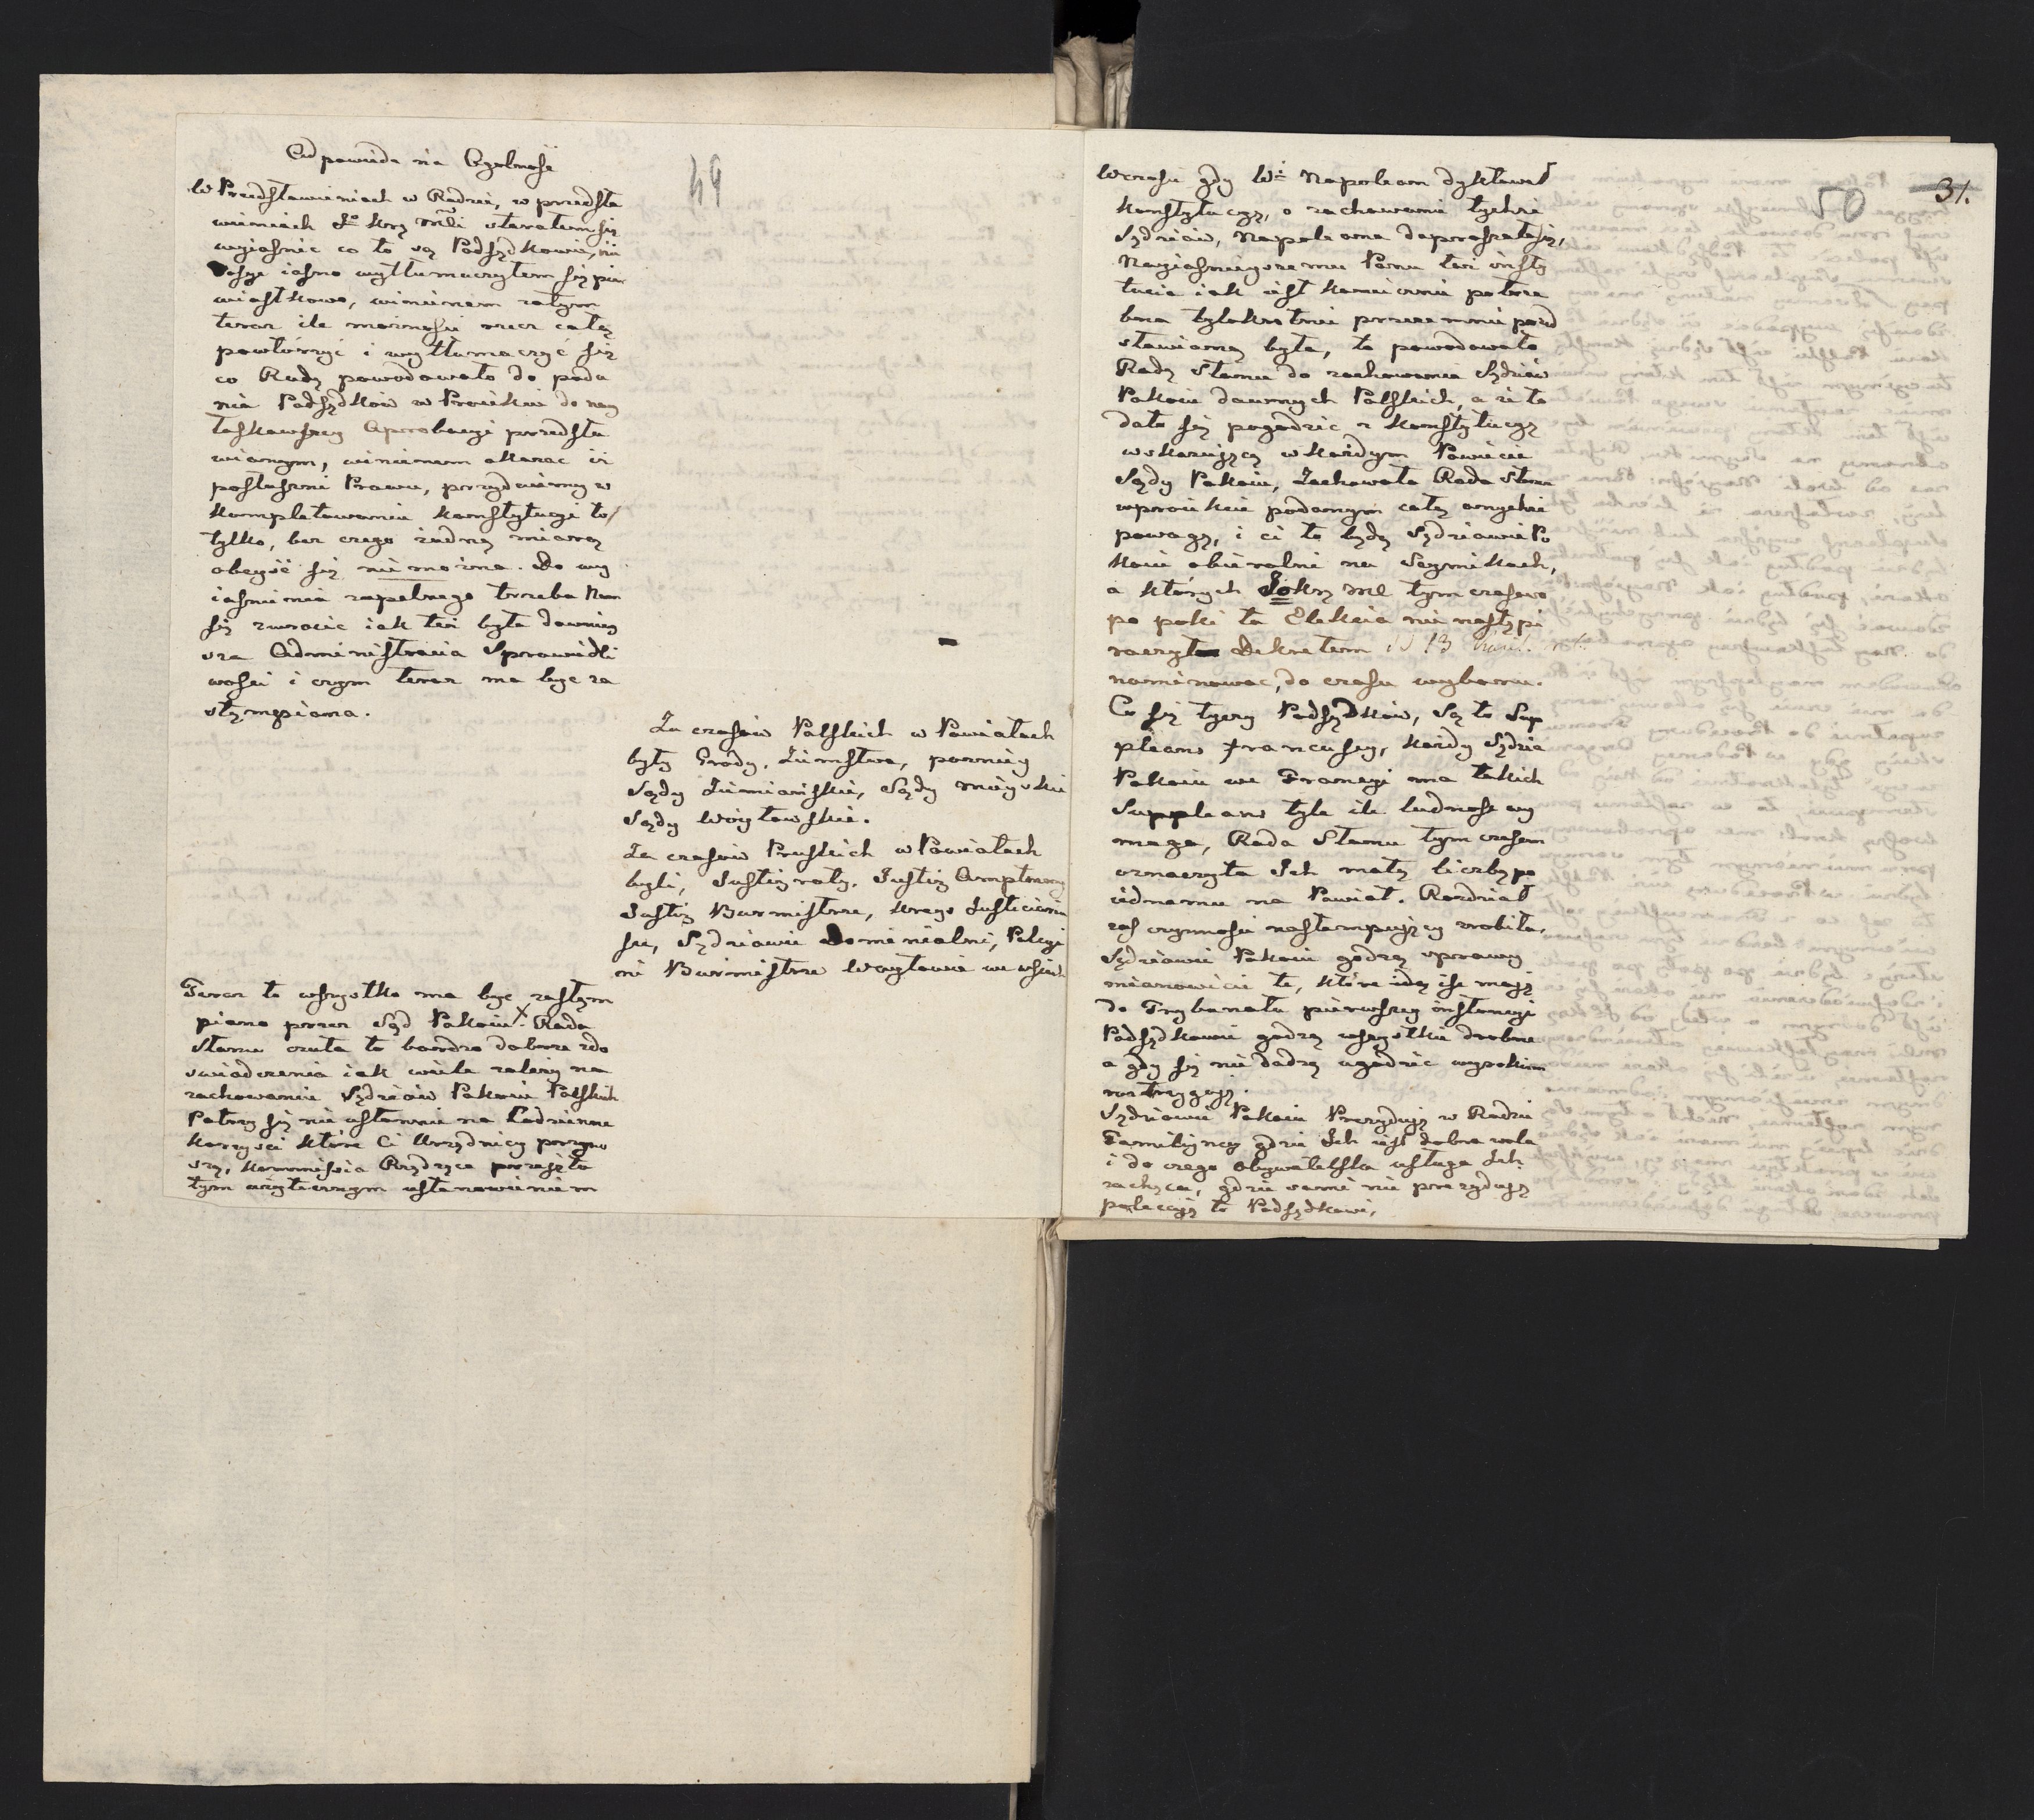 49
Odpowiedz na Ogolnosć
W Przedstawieniach w Radzie, w przedsta
wieniach Jo Krq Mci starałem się
wyiasnic co to są Podsędkowie, nie
dosyc iasno wytłumaczyłem się pier
wiastkowo, winienem zatym
teraz ile możności rzecz całą
powtórzyć i wytłumaczyć się
co Radę powodowało do poda
nia Podsędków w Proiekcie do nay
łaskawszey Aprobacyi przedsta
wionym, winienem okazac iż
posłuszni Prawu, przydaiemy w
kompletowaniu Konstytucyi to
tylko, bez czego żadną miarą
obeyść się nie można. Do wy
iasnienia zupełnego trzeba Nam
się zwrocic iak też była dawniey
sza Administracia Sprawiedli
wosci i czym teraz ma byc za
stąmpiona.
Za czasów Polskich w Powiatach
były Grody, Ziemstwa, pozniey
Sądy Ziemiańskie, Sądy mieyskie
Sądy Woytowskie.
Za czasów Pruskich w Powiatach
byli, Justizraty, Justiz Amptmany
Justiz Burmistrze, Kreys Justiciariu
sze, Sędziowie Dominialni, Policyi
ni Burmistrze Woytowie we wsiach
Teraz to wszystko ma byc zastąm
piono przez Sąd Pokoiu X. Rada
Stanu czuła to bardzo dobrze zdo
swiadczenia iak wiele zależy na
zachowaniu Sędziów Pokoiu Polskich
Patrzy się nieustannie na Codzienne
korzysci które Ci Urzędnicy przyno
szą, Kommissia Rządząca przeięta
tym użytecznym ustanowieniem
50
31.
Wczasu gdy Wi Napoleon dyktował
Konstytucyą, o zachowanie tychże
Sędziów, Napoleona dopraszała się,
Nayiasnieyszemu Panu też insty
tucia iak iest koniecznie potrze
bna tylokrotnie przezemnie przed
stawioną była, to powodowało
Radę Stanu do zachowania Sędziów
Pokoiu dawnych Polskich, a że to
dało się pogodzic z Konstytucyą
wskazuiącą w każdym Powiecie
Sądy Pokoiu, Zachowała Rada Stanu
wproiekcie podanym całą onychże
powagę, i ci to będą Sędziowie Po
koiu obieralni na Seymikach,
a których JoKrq Mć tymczasowo
po poki ta Elekcia nie nastąpi
raczył Dekretem d 13
nominowac, do czasu wyboru.
Co się tyczy Podsędków, Są to Sup
pleans francuscy, każdy Sędzia
Pokoiu we Francyi ma takich
Suppleans tyle ile ludność wy
maga, Rada Stanu tym czasem
oznaczyła Ich małą liczbę po
iednemu na Powiat. Rozdział
zaś czynności nastempuiący zrobiła,
Sędziowie Pokoiu godzą sprawy
mianowicie te, które iść maią
do Trybunału pierwszey instancyi
Podsędkowie godzą wszystkie drobne
a gdy się nie dadzą ugodzic wyrokiem
roztrzygaią.
Sędziowie Pokoiu Prezyduią w Radzie
Familiyney gdzie Ich iest dobra wola
i do czego Obywatelska usługa Ich
zachęca, gdzie sami nie prezyduią
polecaią to Podsędkowi,